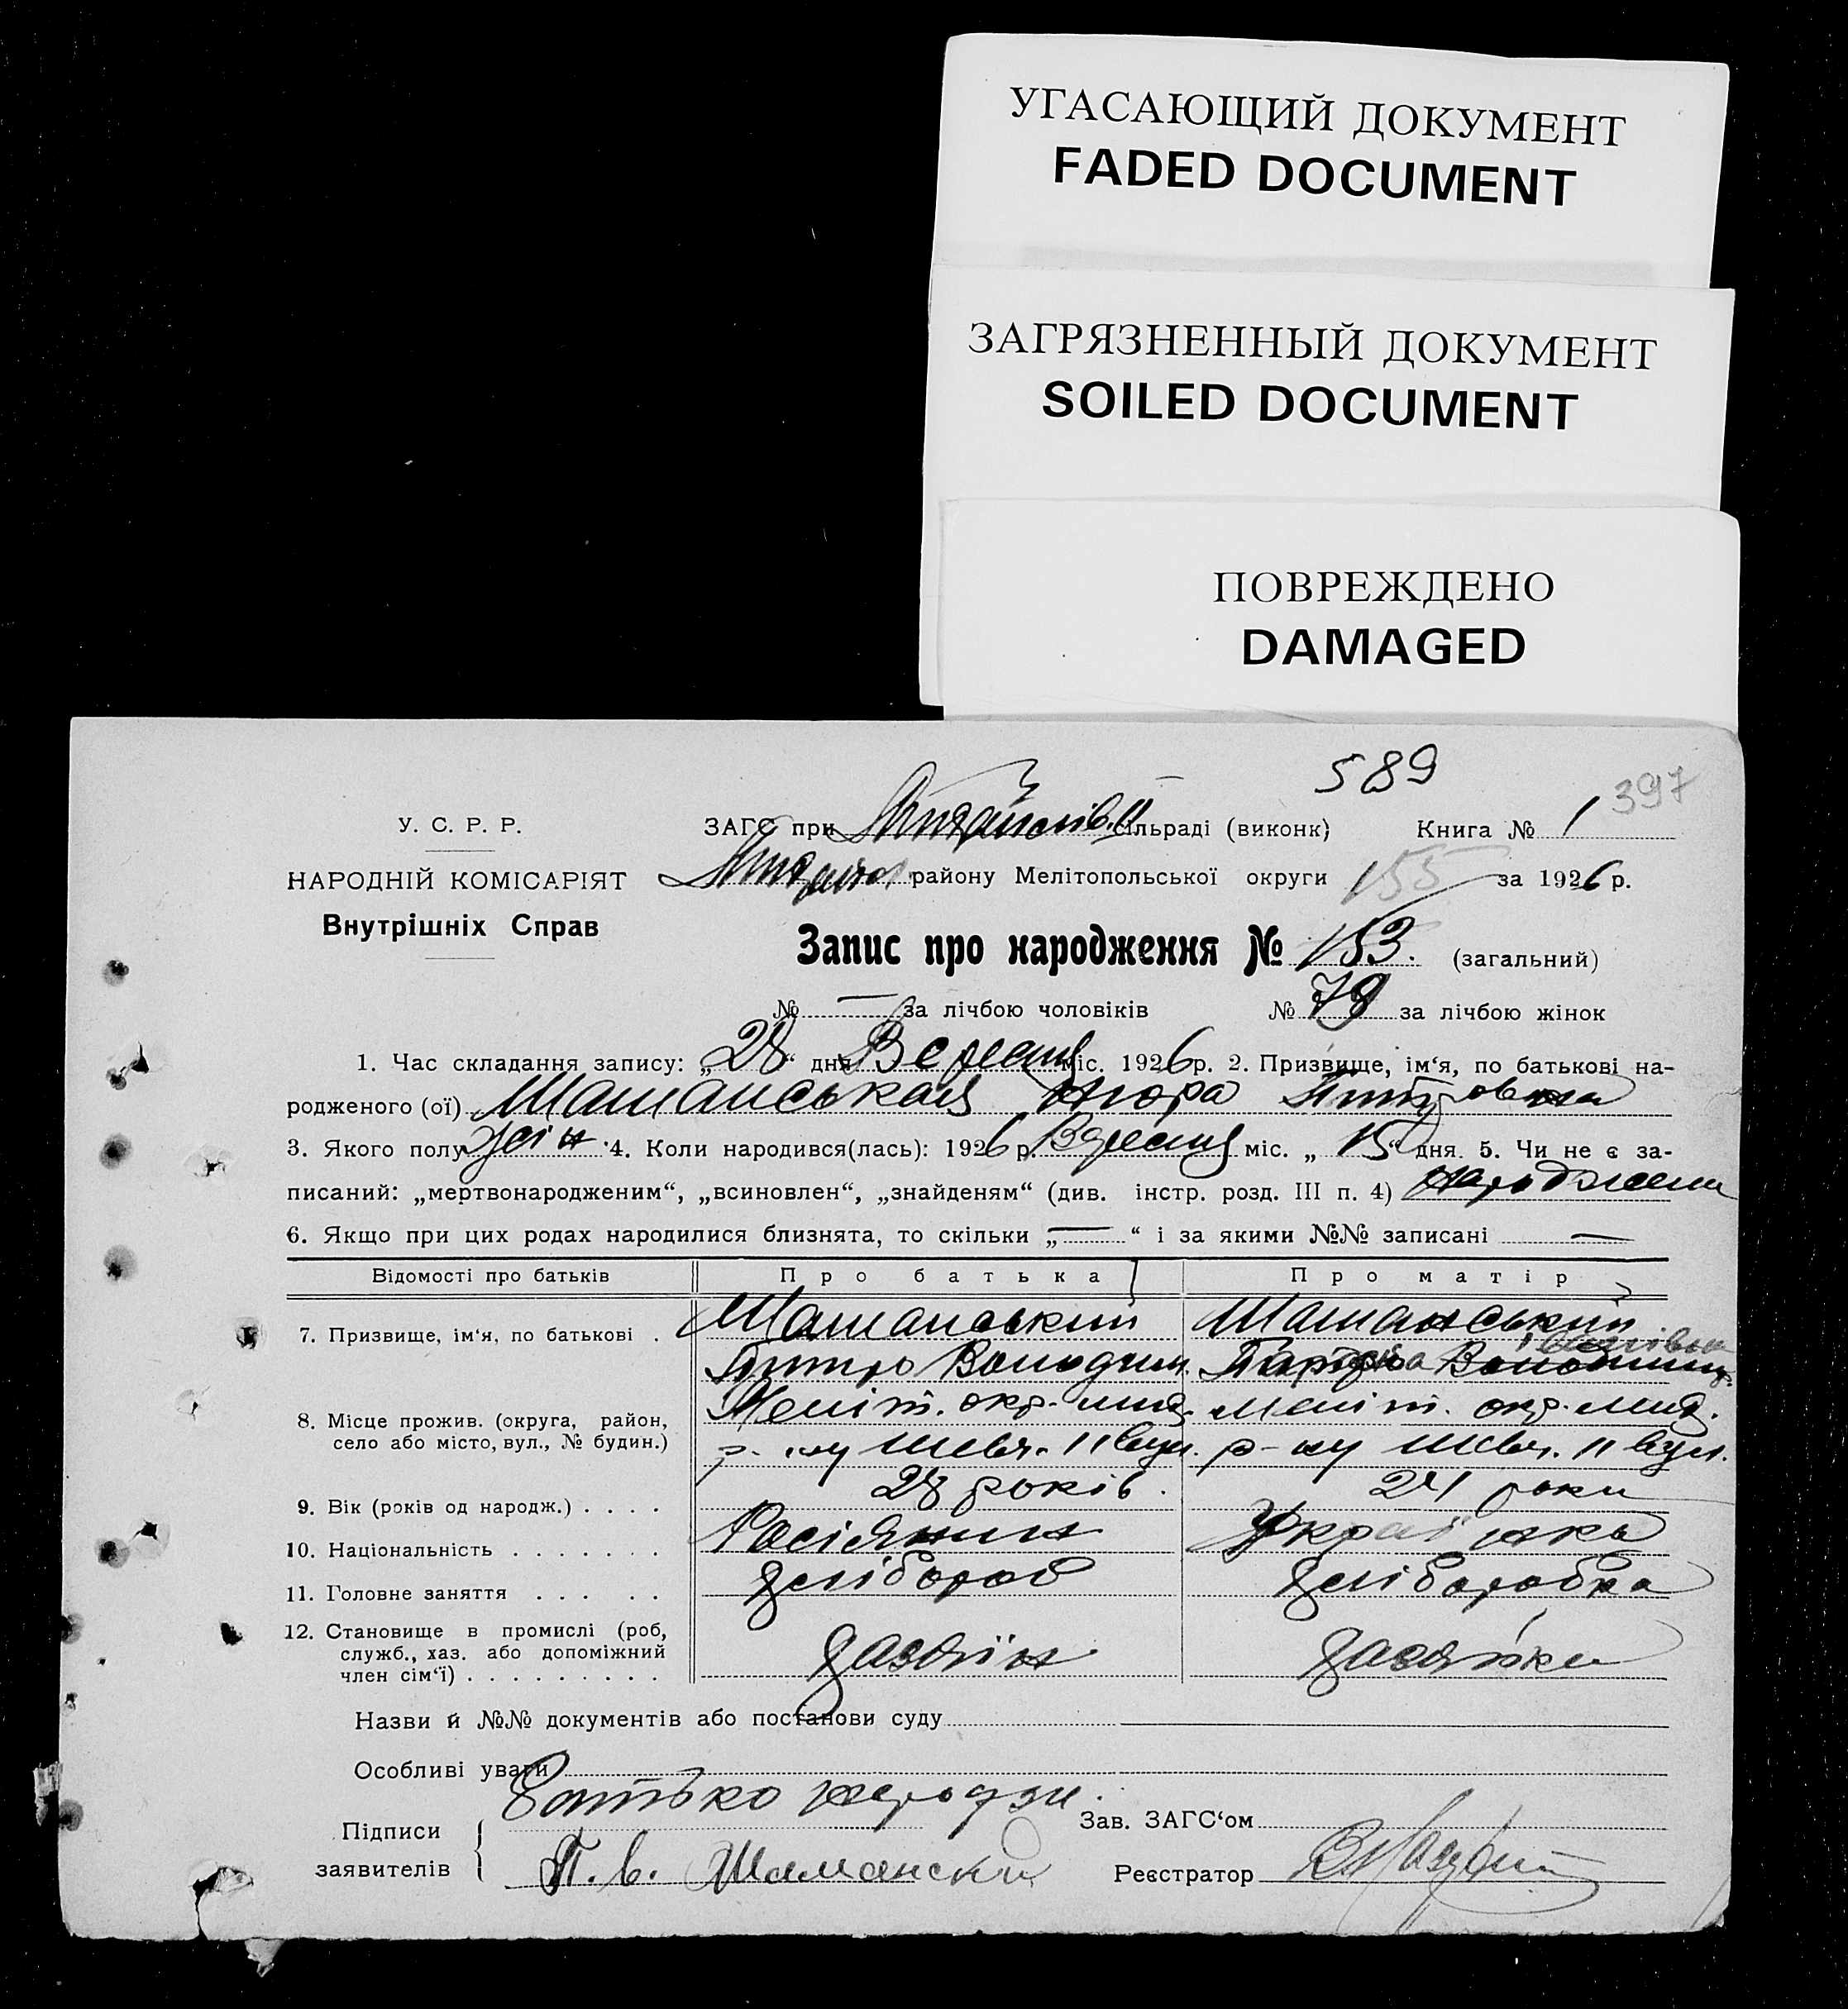 УГАСАЮЩИЙ ДОКУМЕНТ
FADED DOCUMENT
ЗАГРЯЗНЕННЫЙ ДОКУМЕНТ
SOILED DOCUMENT
ПОВРЕЖДЕНО
DAMAGED
589
397
У. С. Р. Р.
ЗАГС при сільраді (виконк) Книга № 1
НАРОДНІЙ КОМІСАРІЯТ
району Мелітопольської округи 155 за 1926 р.
Внутрішніх Справ
Запис про народження № 153. (загальний)
№ — за лічбою чоловіків № 78 за лічбою жінок
1. Час складання запису: „28“ дня Вересня міс. 1926 р. 2. Призвище, ім‘я, по батькові на-
родженого (ої) Шаманськая Нюра Питровна
3. Якого полу жін. 4. Коли народився(лась): 1926 р. Вересня міс. „15“ дня. 5. Чи не є за-
писаний: „мертвонародженим“, „всиновлен“, „знайденям“ (див. інстр. розд. III п. 4)
6. Якщо при цих родах народилися близнята, то скільки „—“ і за якими №№ записані —
Відомості про батьків Про батька Про матір
7. Призвище, ім‘я, по батькові . Шаманський Шаманський
Питро Володим.
8. Місце прожив. (округа, район, Меліт. окр. Меліт. окр.
село або місто, вул., № будин.) р-ну Шевч. 11 вул. р-ну Шевч. 11 вул.
9. Вік (років од народж.) . . . . 28 років. 24 роки
10. Національність . . . . . . . Росіянин Українка
11. Головне заняття . . . . . хлібороб хліборобка
12. Становище в промислі (роб,
служб., хаз. або допоміжний
член сім‘ї) . . . . . . . . . хазяїн хазяйка
Назви й №№ документів або постанови суду
Особливі уваги
Батько народж.
Підписи Зав. ЗАГС‘ом
заявителів П. В. Шамански Реєстратор